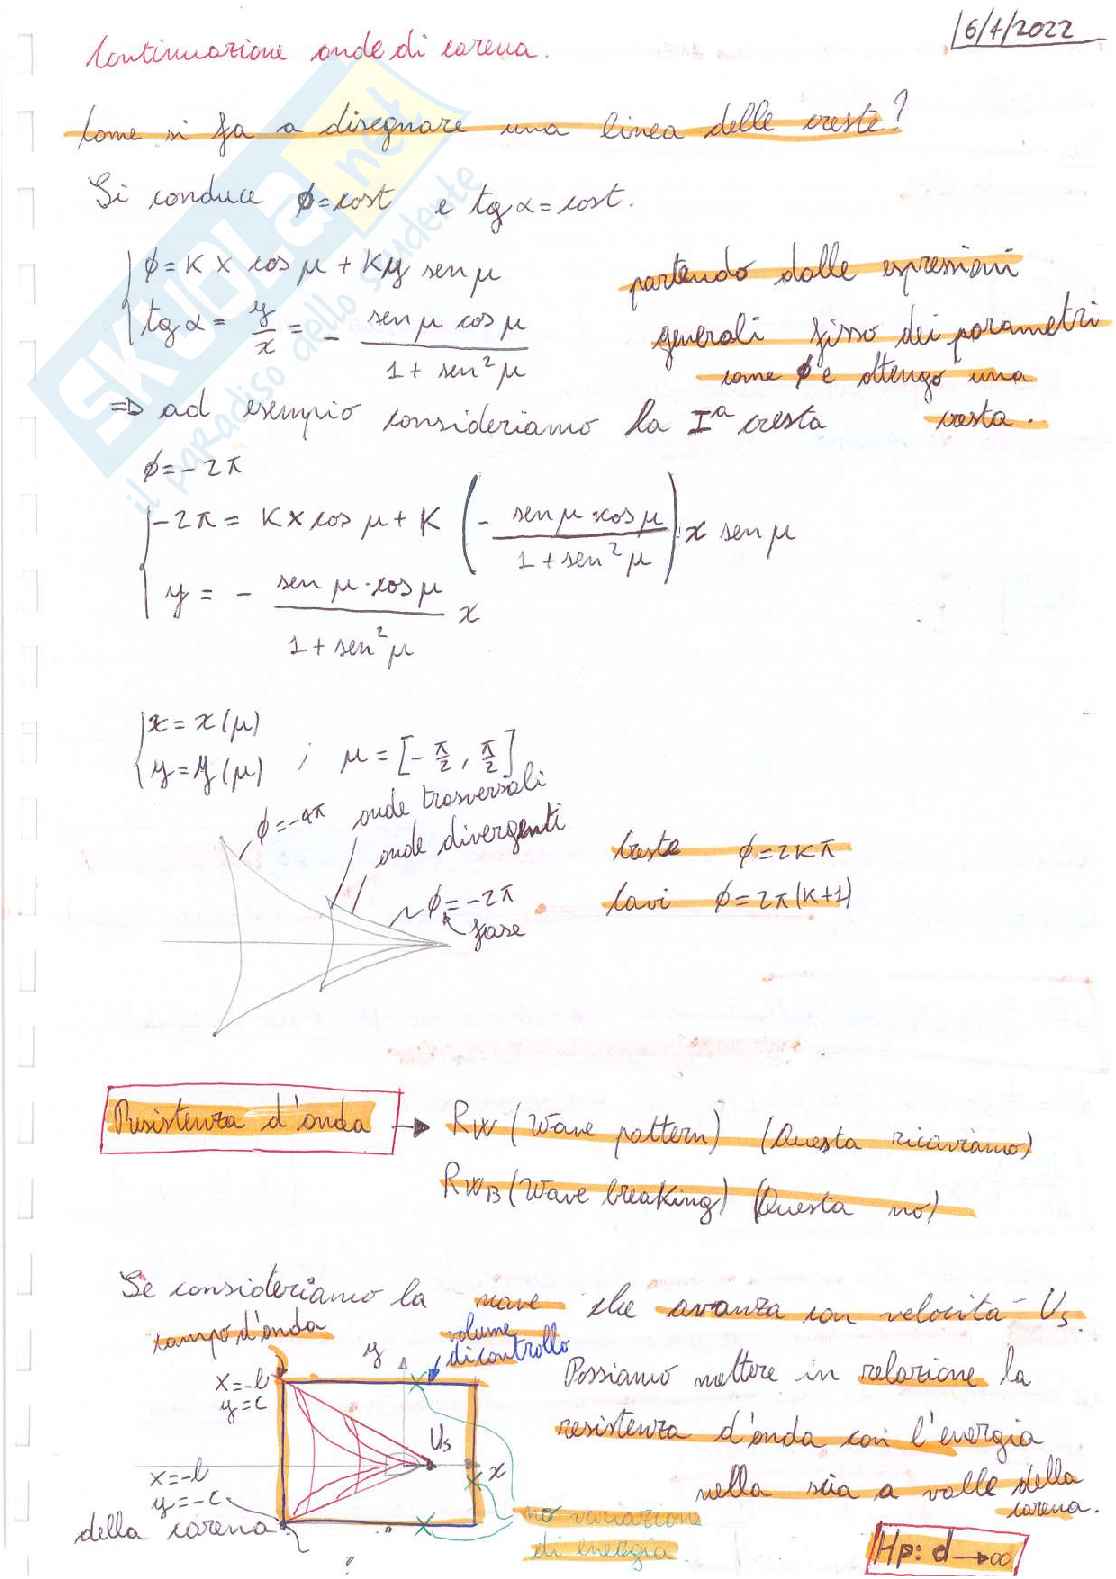 16/4/2022
Continuazione onde di carena.
Come si fa a disegnare una linea delle creste?
Si conduce ϕ=cost e tgα=cost.
ϕ = K x cos μ + K y sen μ
tgα = y/x = - sen μ cos μ / 1 + sen² μ
partendo dalle espressioni
generali fisso dei parametri
come ϕ e ottengo una
cresta.
⇒ ad esempio consideriamo la Iª cresta
ϕ = -2π
-2π = K x cos μ + K (- sen μ · cos μ / 1 + sen² μ) · x sen μ
y = - sen μ · cos μ / 1 + sen² μ x
x = x(μ)
y = y(μ) ; μ = [-π/2, π/2]
ϕ=-4π onde trasversali
onde divergenti
ϕ=-2π
fase
Creste ϕ=2Kπ
Cavi ϕ=2π(K+1)
Resistenza d'onda → RW (Wave pattern) (Questa ricaviamo)
RWB (Wave breaking) (Questa no)
Se consideriamo la nave che avanza con velocità Us.
campo d'onda
volume
di controllo
y
x=-b
y=c
Us
x
x=-b
y=-c
Possiamo mettere in relazione la
resistenza d'onda con l'energia
nella scia a valle della
carena.
della carena
no variazione
di energia
Hp: d→∞
SKUOLA.net
il paradiso dello studente